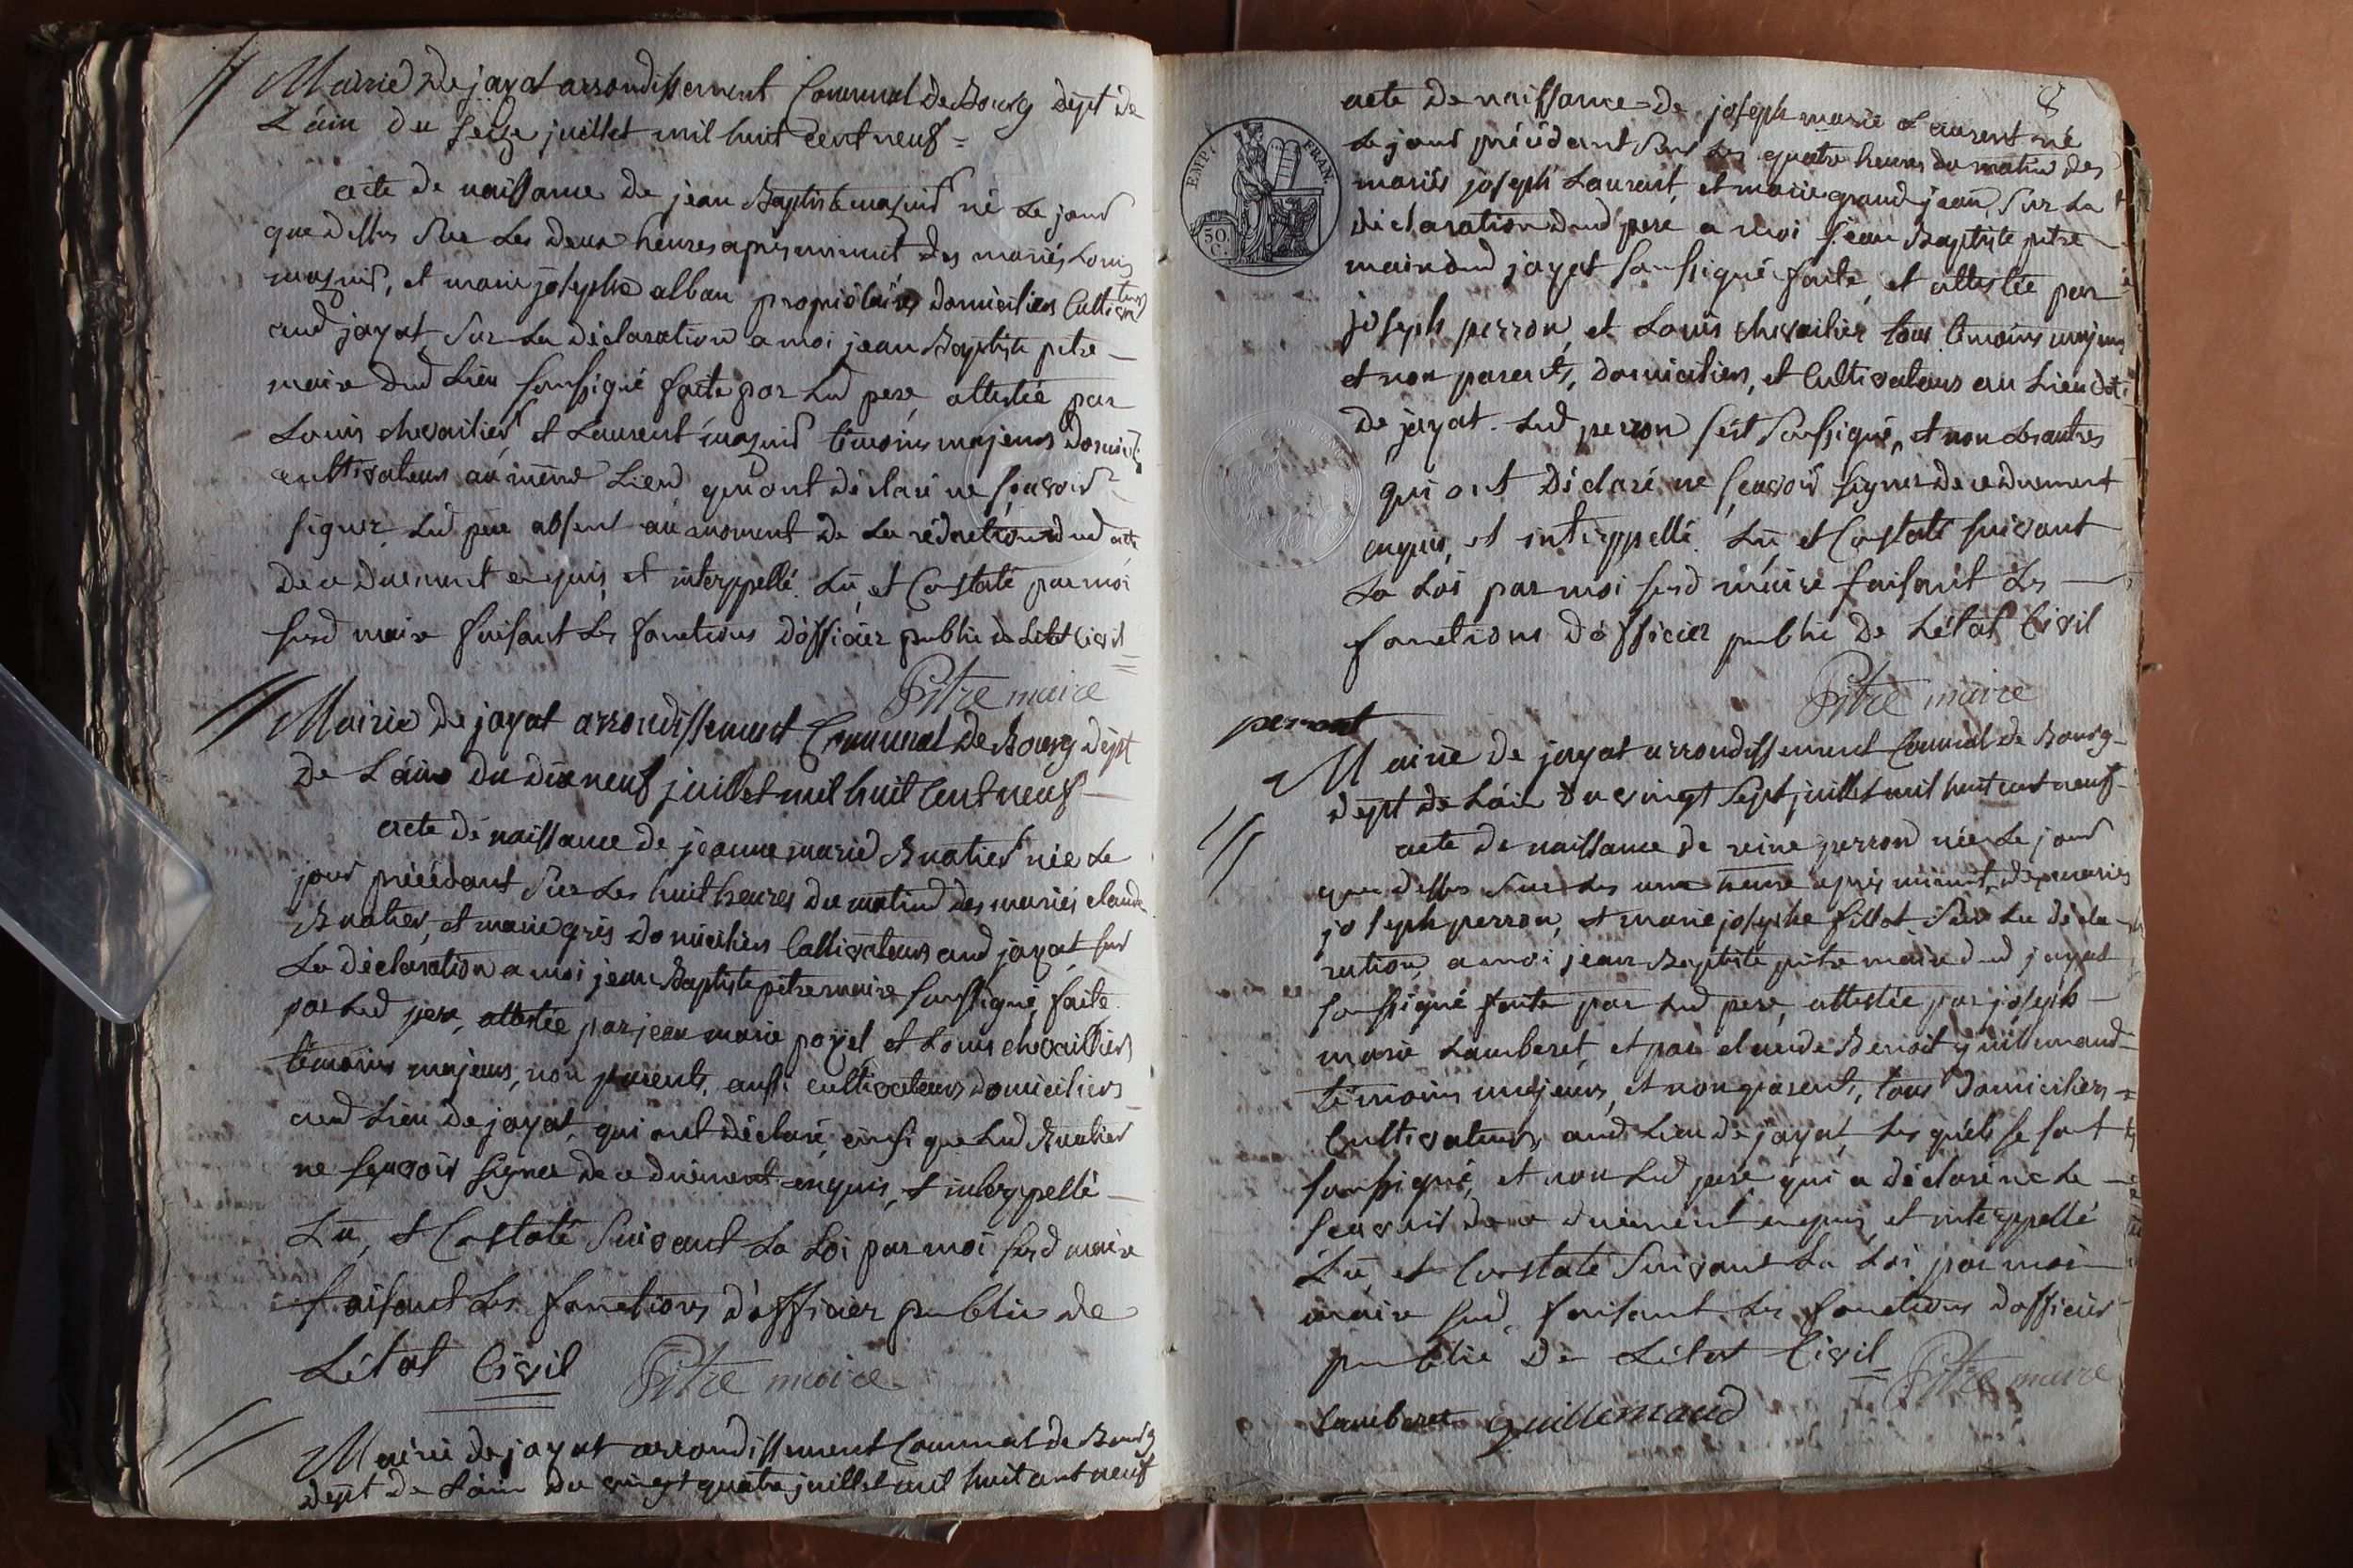 Mairie de jayat arrondissement Communal de Bourg dept de
L'ain du seize juillet mil huit cent neuf =
acte de naissance de jean Baptiste mazuir né Le jour
que dessus sur Les deux heures apres minuit des mariés Louis
mazuir, et marie josephe alban propriétaires domiciliers Cultivateurs
aud jayat, sur La déclaration a moi jean Baptiste pitre
maire dud Lieu soussigné faite par Lud pere, attestée par
Louis chevailier et Laurent mazuir témoins majeurs domicil
cultivateurs au même Lieu, qui ont déclaré ne sçavoir
signer, Lud pere absent au moment de La rédaction dud acte
de ce duement enquis, et interppellé. Lu, et Constaté par moi
susd maire faisant Les fonctions d'officier public de Létat Civil
Pitre maire
Mairie de jayat arrondissement Communal de Bourg dept
De L'ain du dix neuf juillet mil huit Cent neuf
acte de naissance de jeanne marie Buatier née Le
jour précédant sur Les huit heures du matin des mariés claude
Buatier, et marie gris domiciliers Cultivateurs aud jayat, sur
La déclaration a moi jean Baptiste pitre maire soussigné, faite
par Lud pere, attestée par jean marie poÿel, et Louis chevaillier
témoins majeurs, non parents, aussi cultivateurs domiciliers
aud Lieu de jayat, qui ont déclaré, ainsi que Lud Buatier
ne sçavoir signer de ce duement enquis, et interppellé
Lu, et Constaté suivant La Loi par moi susd maire
faisant Les fonctions d'officier public de
Létat Civil Pitre maire
Mairie de jayat arrondissement Communal de Bourg
dept de L'ain du vingt quatre juillet mil huit cent neuf
8
acte de naissance de joseph marie Laurent né
Le jour précédant sur Les quatre heures du matin des
mariés joseph Laurent, et marie grand jean, sur La
déclaration dud pere a moi jean Baptiste pitre
maire dud jayat soussigné faite, et attestée par
joseph perron, et Louis chevailier tous témoins majeurs
et non parents, domiciliers, et Cultivateurs au Lieu dit
de jayat. Lud perron s'est soussigné, et non Les autres
qui ont déclaré ne sçavoir signer de ce duement
enquis, et interppellé. Lu, et Constaté suivant
La Loi par moi susd maire faisant Les
fonctions d'officier public de Létat Civil
Pitre maire
perront
EMP. FRAN.
50 C.
Mairie de jayat arrondissement Communal de Bourg
dept de L'ain du vingt sept juillet mil huit cent neuf
acte de naissance de reine perron née Le jour
que dessus sur Les une heure après minuit, des mariés
joseph perron, et marie josephe fillot. sur La décla
ration, a moi jean Baptiste pitre maire dud jayat
soussigné faite par Lud pere, attestée par joseph
marie Lamberet, et par claude Benoit guillemaud
témoins majeurs, et non parents, tous domiciliers
Cultivateurs aud Lieu de jayat, Les quels se sont
soussigné, et non Lud pere qui a déclaré ne Le
sçavoir de ce duement enquis et interppellé
Lu, et Constaté suivant La Loi par moi
maire susd, faisant Les fonctions d'officier
public de Létat Civil Pitre maire
Lamberet guillemaud